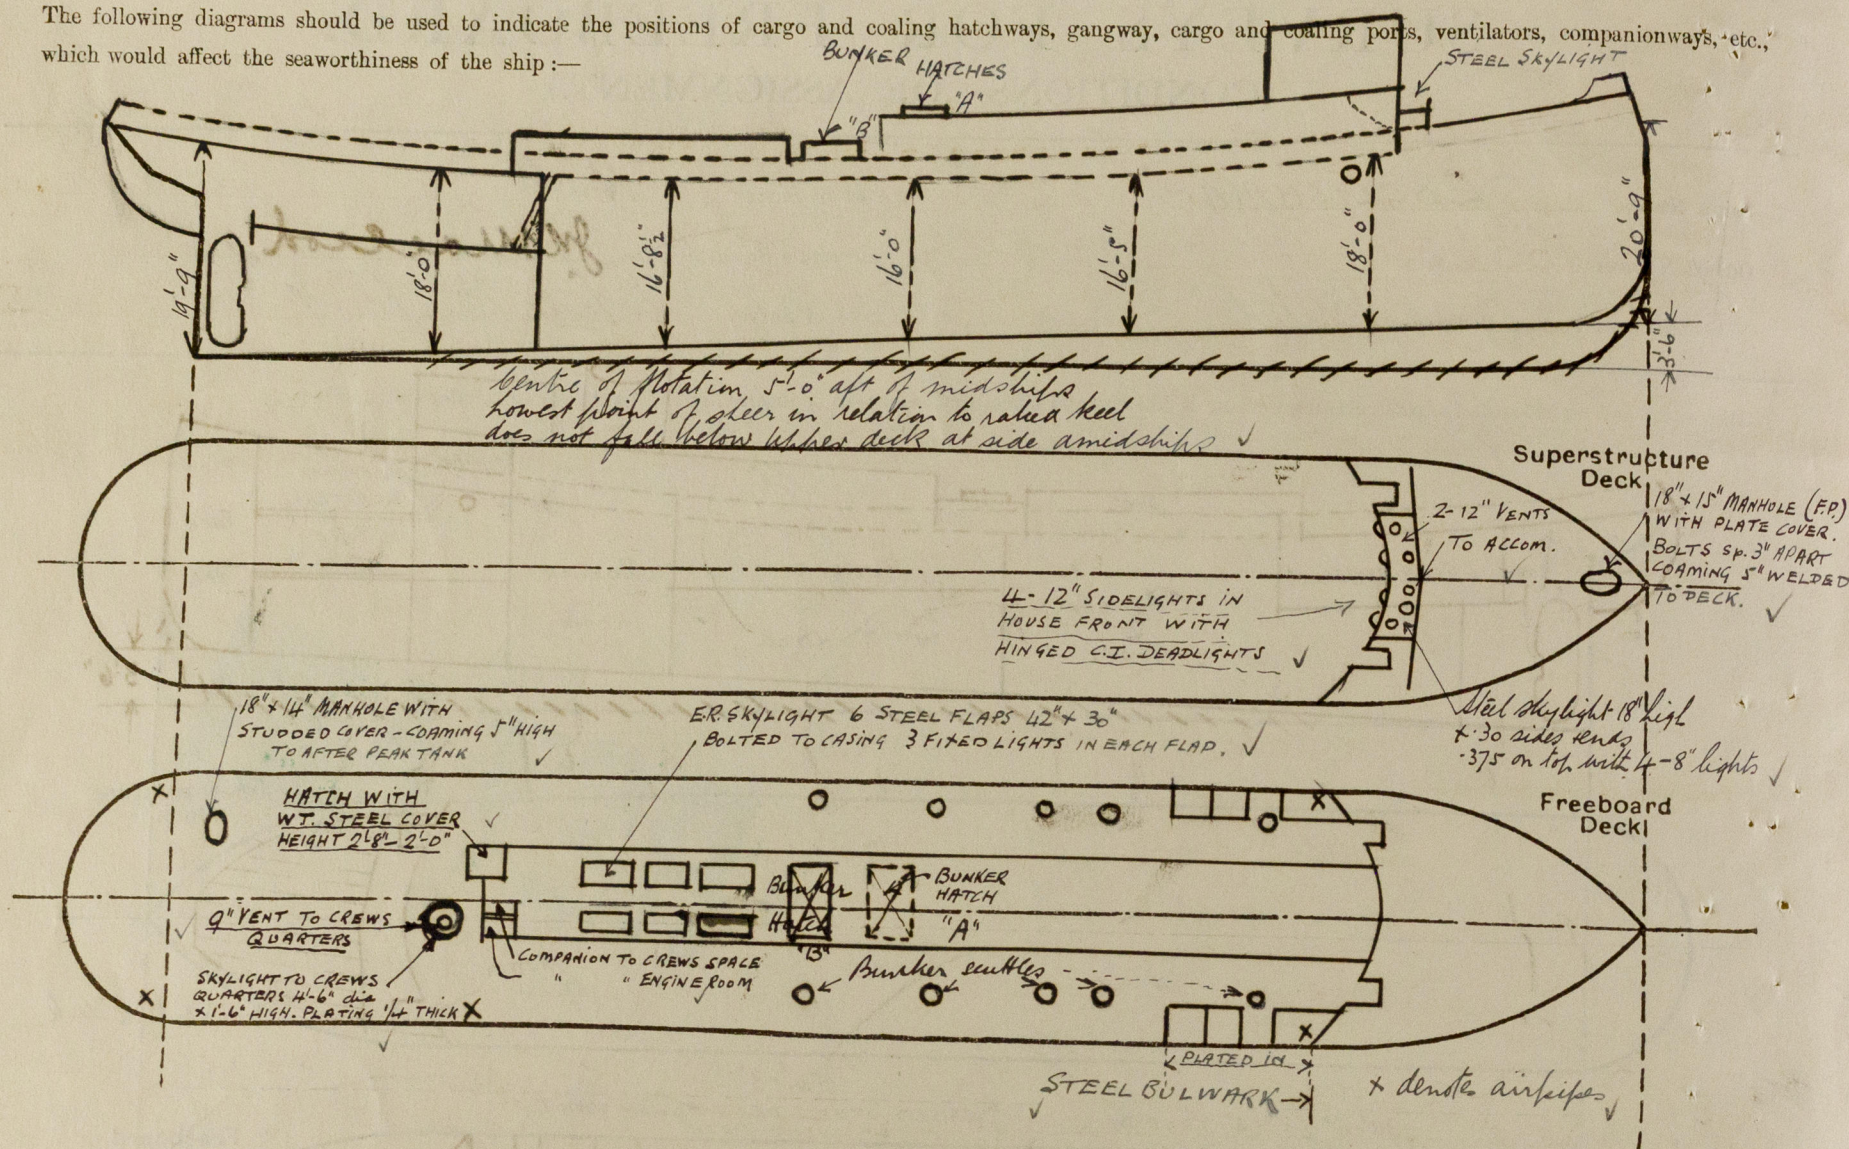 The following diagrams should be used to indicate the positions of cargo and coaling hatchways, gangway, cargo and coaling ports, ventilators, companionways, etc.,
which would affect the seaworthiness of the ship :—
BUNKER HATCHES
"A"
"B"
STEEL SKYLIGHT
19'-9"
18'-0"
16'-8½"
16'-0"
16'-5"
18'-0"
20'-9"
3'-6"
Centre of flotation 5'-0" aft of midships
Lowest point of sheer in relation to raked keel
does not fall below Upper deck at side amidships ✓
Superstructure
Deck
18" x 15" MANHOLE (F.P.)
WITH PLATE COVER.
BOLTS sp. 3" APART
COAMING 5" WELDED
TO DECK. ✓
2-12" VENTS
TO ACCOM.
✓
4-12" SIDELIGHTS IN
HOUSE FRONT WITH
HINGED C.I. DEADLIGHTS ✓
Steel skylight 18" high
x .30 sides & ends
.375 on top with 4-8" lights ✓
18" x 14" MANHOLE WITH
STUDDED COVER - COAMING 5" HIGH
TO AFTER PEAK TANK ✓
E.R. SKYLIGHT 6 STEEL FLAPS 42" x 30"
BOLTED TO CASING 3 FIXED LIGHTS IN EACH FLAP. ✓
Freeboard
Deck
HATCH WITH
WT. STEEL COVER
HEIGHT 2'8" - 2'-0"
✓
Bunker
Hatch
"B"
A
BUNKER
HATCH
"A"
9" VENT TO CREWS
QUARTERS
✓
COMPANION TO CREWS SPACE
" " ENGINE ROOM
SKYLIGHT TO CREWS
QUARTERS 4'-6" dia
x 1'-6" HIGH. PLATING ¼" THICK
✓
Bunker scuttles
PLATED IN
STEEL BULWARK
✓
x denotes airpipes ✓